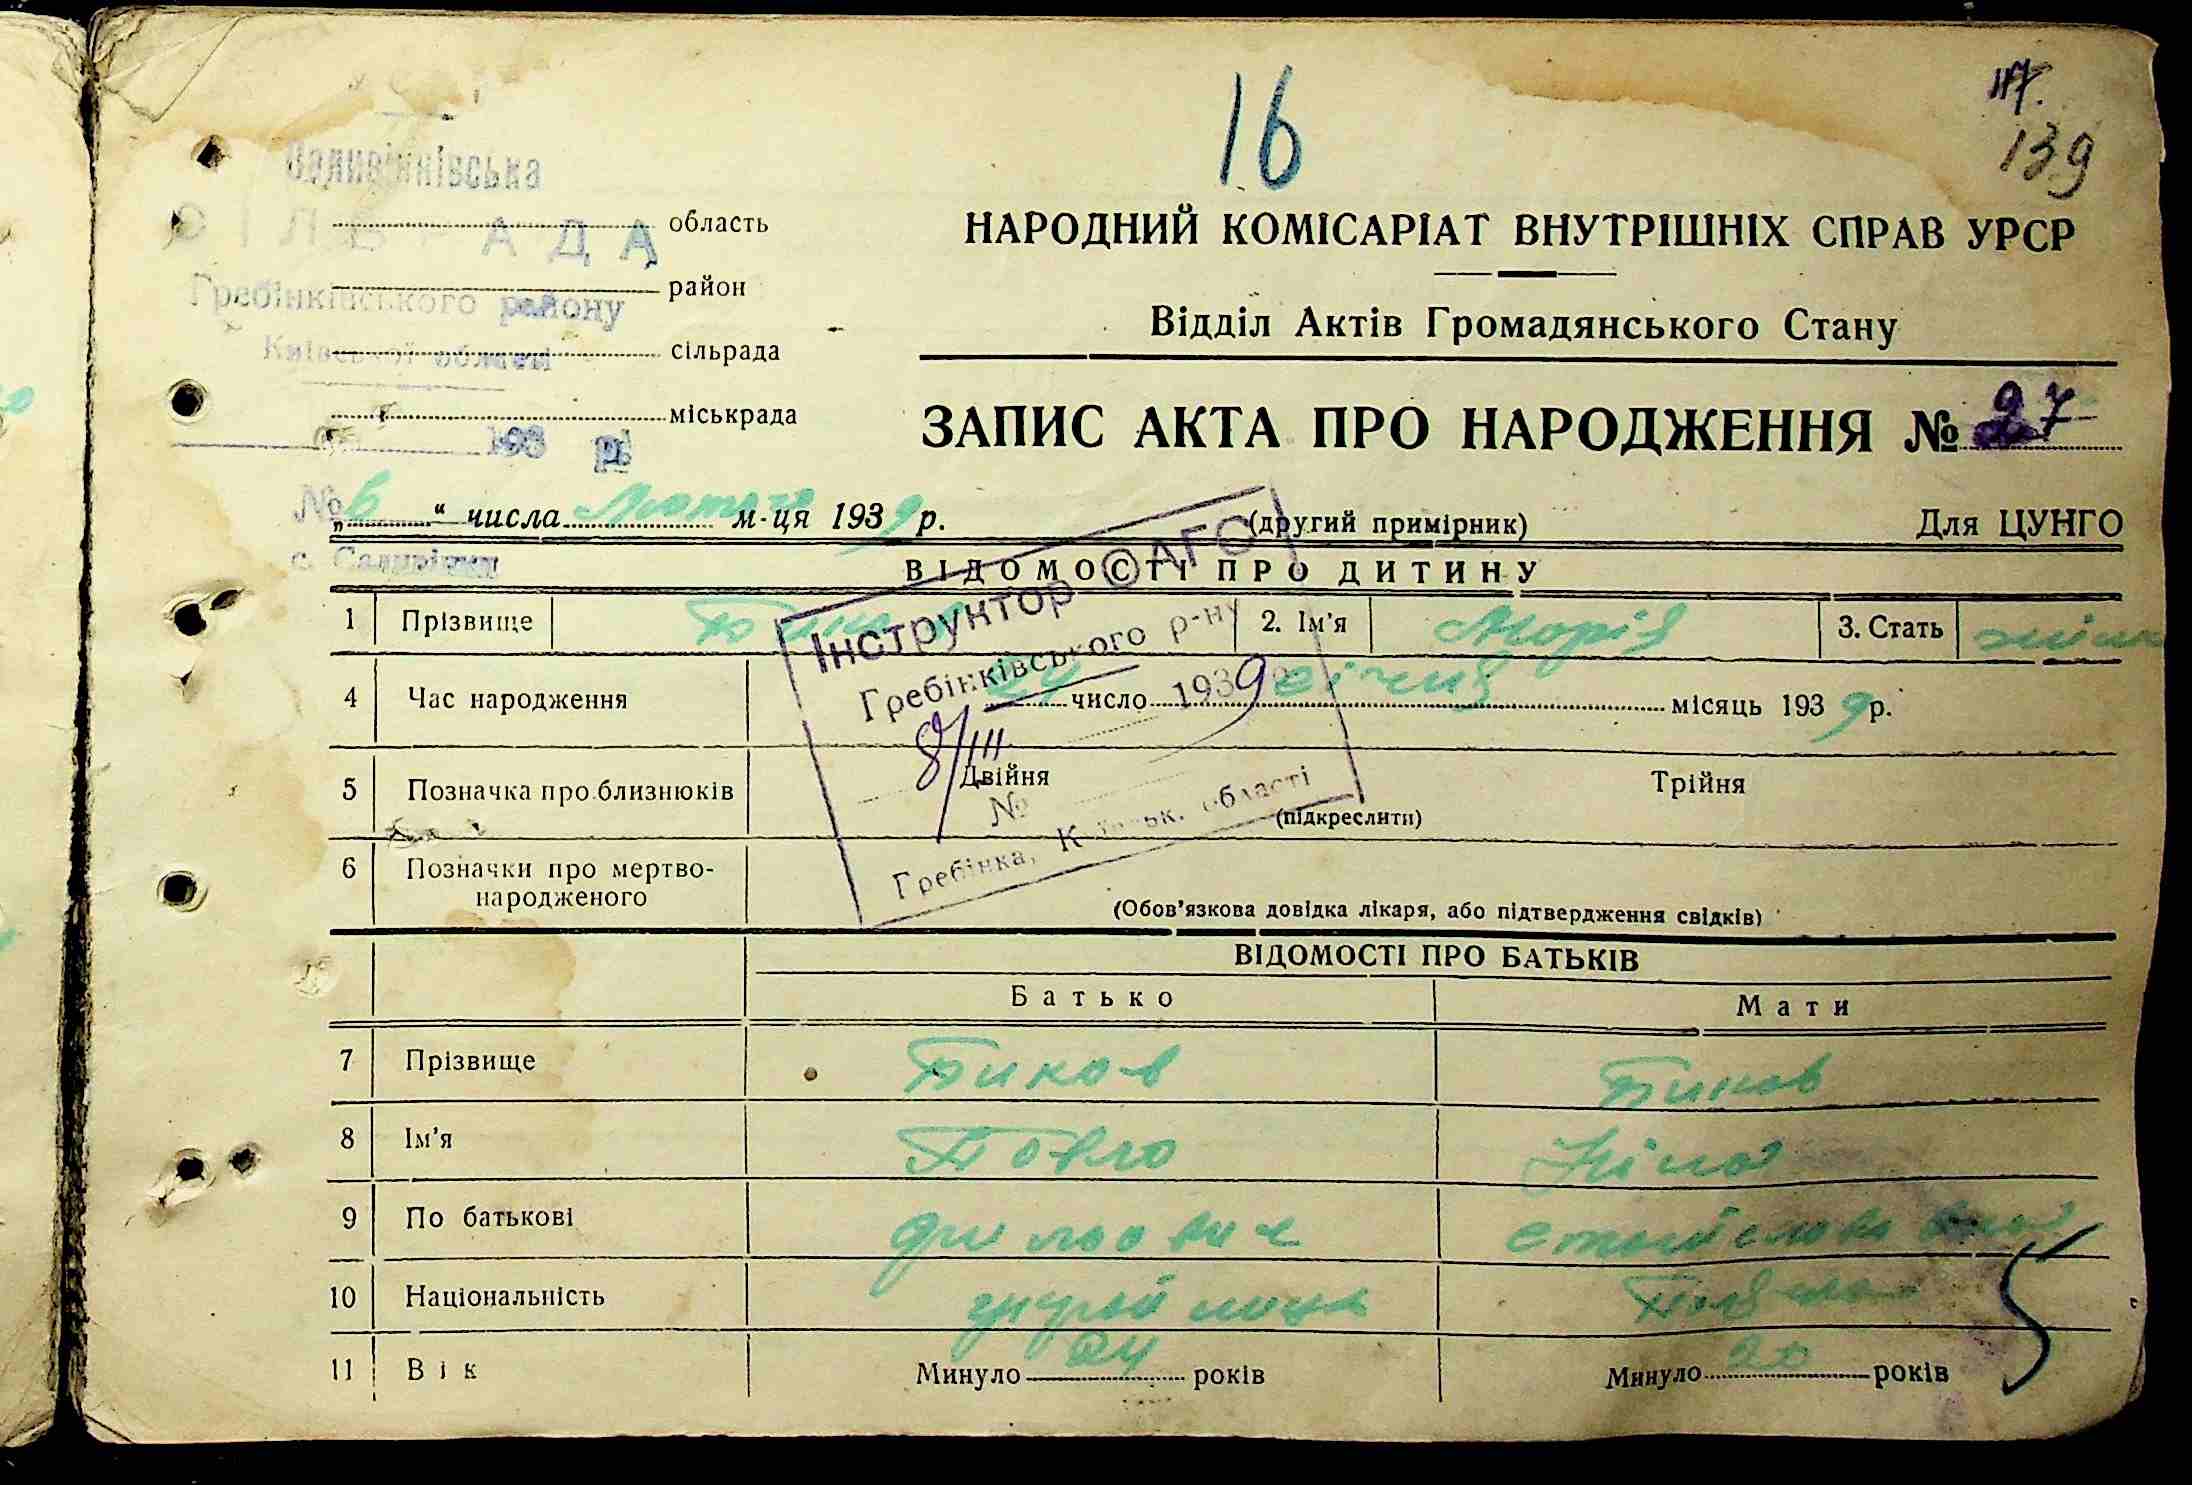 16
117.
139
Саливінківська
область
АДА
район
Гребінківського району
сільрада
Київської області
міськрада
193 р.
НАРОДНИЙ КОМІСАРІАТ ВНУТРІШНІХ СПРАВ УРСР
Відділ Актів Громадянського Стану
ЗАПИС АКТА ПРО НАРОДЖЕННЯ № 27
№
„6“ числа Лютого м-ця 1939 р.
(другий примірник)
Для ЦУНГО
с. Саливінки
ВІДОМОСТІ ПРО ДИТИНУ
Інструктор ОАГС
Гребінківського р-ну
8/III 1939
№
Гребінка, Київськ. області
1 Прізвище 2. Ім'я Марія 3. Стать
4 Час народження число січня місяць 1939 р.
5 Позначка про близнюків Двійня Трійня
(підкреслити)
6 Позначки про мертво-
народженого
(Обов'язкова довідка лікаря, або підтвердження свідків)
ВІДОМОСТІ ПРО БАТЬКІВ
Батько Мати
7 Прізвище Биков Биков
8 Ім'я Павло Ніна
9 По батькові
10 Національність
11 Вік Минуло 24 років Минуло 20 років
5